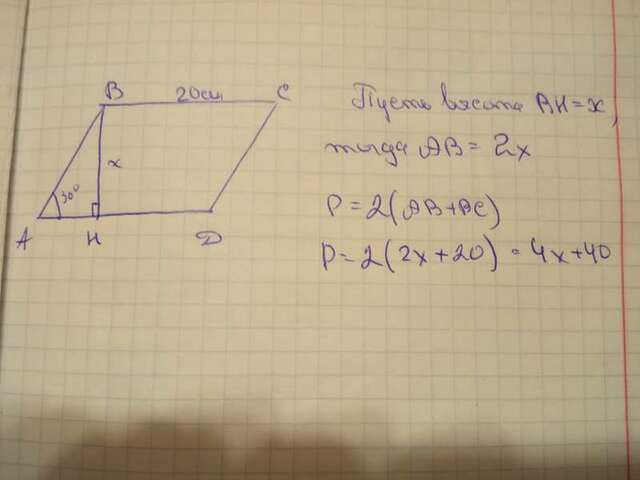 B 20см C
x
30°
A H D
Пусть высота BH = x,
тогда AB = 2x
P = 2(AB+BC)
P = 2(2x+20) = 4x+40